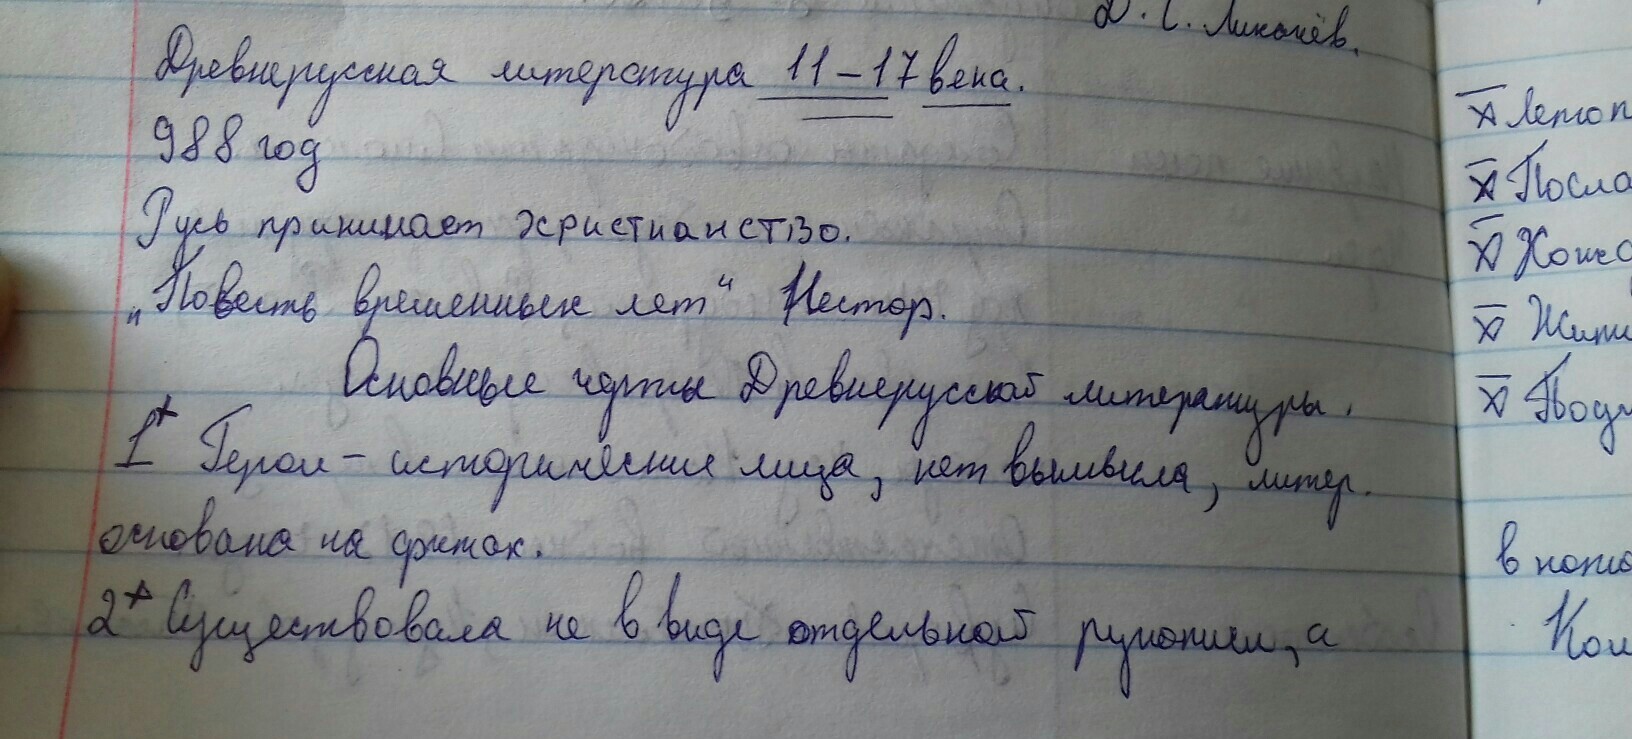 Д. С. Лихачёв.
Древнерусская литература 11-17 века.
988 год
Русь принимает христианство.
„Повесть временных лет“ Нестор.
Основные черты Древнерусской литературы.
1* Герои - исторические лица, нет вымысла, литер.
основана на фктах.
2* Существовала не в виде отдельной рукописи, а
Летоп
Посла
Хожд
Жити
Поуч
в кото
Ком